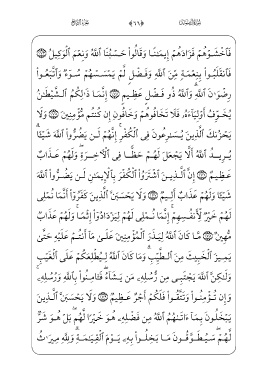 الجزء الرابع ﴿٦٦﴾
فَٱخْشَوْهُمْ فَزَادَهُمْ إِيمَـٰنًا وَقَالُوا۟ حَسْبُنَا ٱللَّهُ وَنِعْمَ ٱلْوَكِيلُ
فَٱنقَلَبُوا۟ بِنِعْمَةٍ مِّنَ ٱللَّهِ وَفَضْلٍ لَّمْ يَمْسَسْهُمْ سُوٓءٌ وَٱتَّبَعُوا۟
رِضْوَٰنَ ٱللَّهِ وَٱللَّهُ ذُو فَضْلٍ عَظِيمٍ إِنَّمَا ذَٰلِكُمُ ٱلشَّيْطَـٰنُ
يُخَوِّفُ أَوْلِيَآءَهُۥ فَلَا تَخَافُوهُمْ وَخَافُونِ إِن كُنتُم مُّؤْمِنِينَ وَلَا
يَحْزُنكَ ٱلَّذِينَ يُسَـٰرِعُونَ فِى ٱلْكُفْرِ إِنَّهُمْ لَن يَضُرُّوا۟ ٱللَّهَ شَيْـًٔا
يُرِيدُ ٱللَّهُ أَلَّا يَجْعَلَ لَهُمْ حَظًّا فِى ٱلْـَٔاخِرَةِ وَلَهُمْ عَذَابٌ
عَظِيمٌ إِنَّ ٱلَّذِينَ ٱشْتَرَوُا۟ ٱلْكُفْرَ بِٱلْإِيمَـٰنِ لَن يَضُرُّوا۟ ٱللَّهَ
شَيْـًٔا وَلَهُمْ عَذَابٌ أَلِيمٌ وَلَا يَحْسَبَنَّ ٱلَّذِينَ كَفَرُوٓا۟ أَنَّمَا نُمْلِى
لَهُمْ خَيْرٌ لِّأَنفُسِهِمْ إِنَّمَا نُمْلِى لَهُمْ لِيَزْدَادُوٓا۟ إِثْمًا وَلَهُمْ عَذَابٌ
مُّهِينٌ مَّا كَانَ ٱللَّهُ لِيَذَرَ ٱلْمُؤْمِنِينَ عَلَىٰ مَآ أَنتُمْ عَلَيْهِ حَتَّىٰ
يَمِيزَ ٱلْخَبِيثَ مِنَ ٱلطَّيِّبِ وَمَا كَانَ ٱللَّهُ لِيُطْلِعَكُمْ عَلَى ٱلْغَيْبِ
وَلَـٰكِنَّ ٱللَّهَ يَجْتَبِى مِن رُّسُلِهِۦ مَن يَشَآءُ فَـَٔامِنُوا۟ بِٱللَّهِ وَرُسُلِهِۦ
وَإِن تُؤْمِنُوا۟ وَتَتَّقُوا۟ فَلَكُمْ أَجْرٌ عَظِيمٌ وَلَا يَحْسَبَنَّ ٱلَّذِينَ
يَبْخَلُونَ بِمَآ ءَاتَىٰهُمُ ٱللَّهُ مِن فَضْلِهِۦ هُوَ خَيْرًا لَّهُم بَلْ هُوَ شَرٌّ
لَّهُمْ سَيُطَوَّقُونَ مَا بَخِلُوا۟ بِهِۦ يَوْمَ ٱلْقِيَـٰمَةِ وَلِلَّهِ مِيرَٰثُ